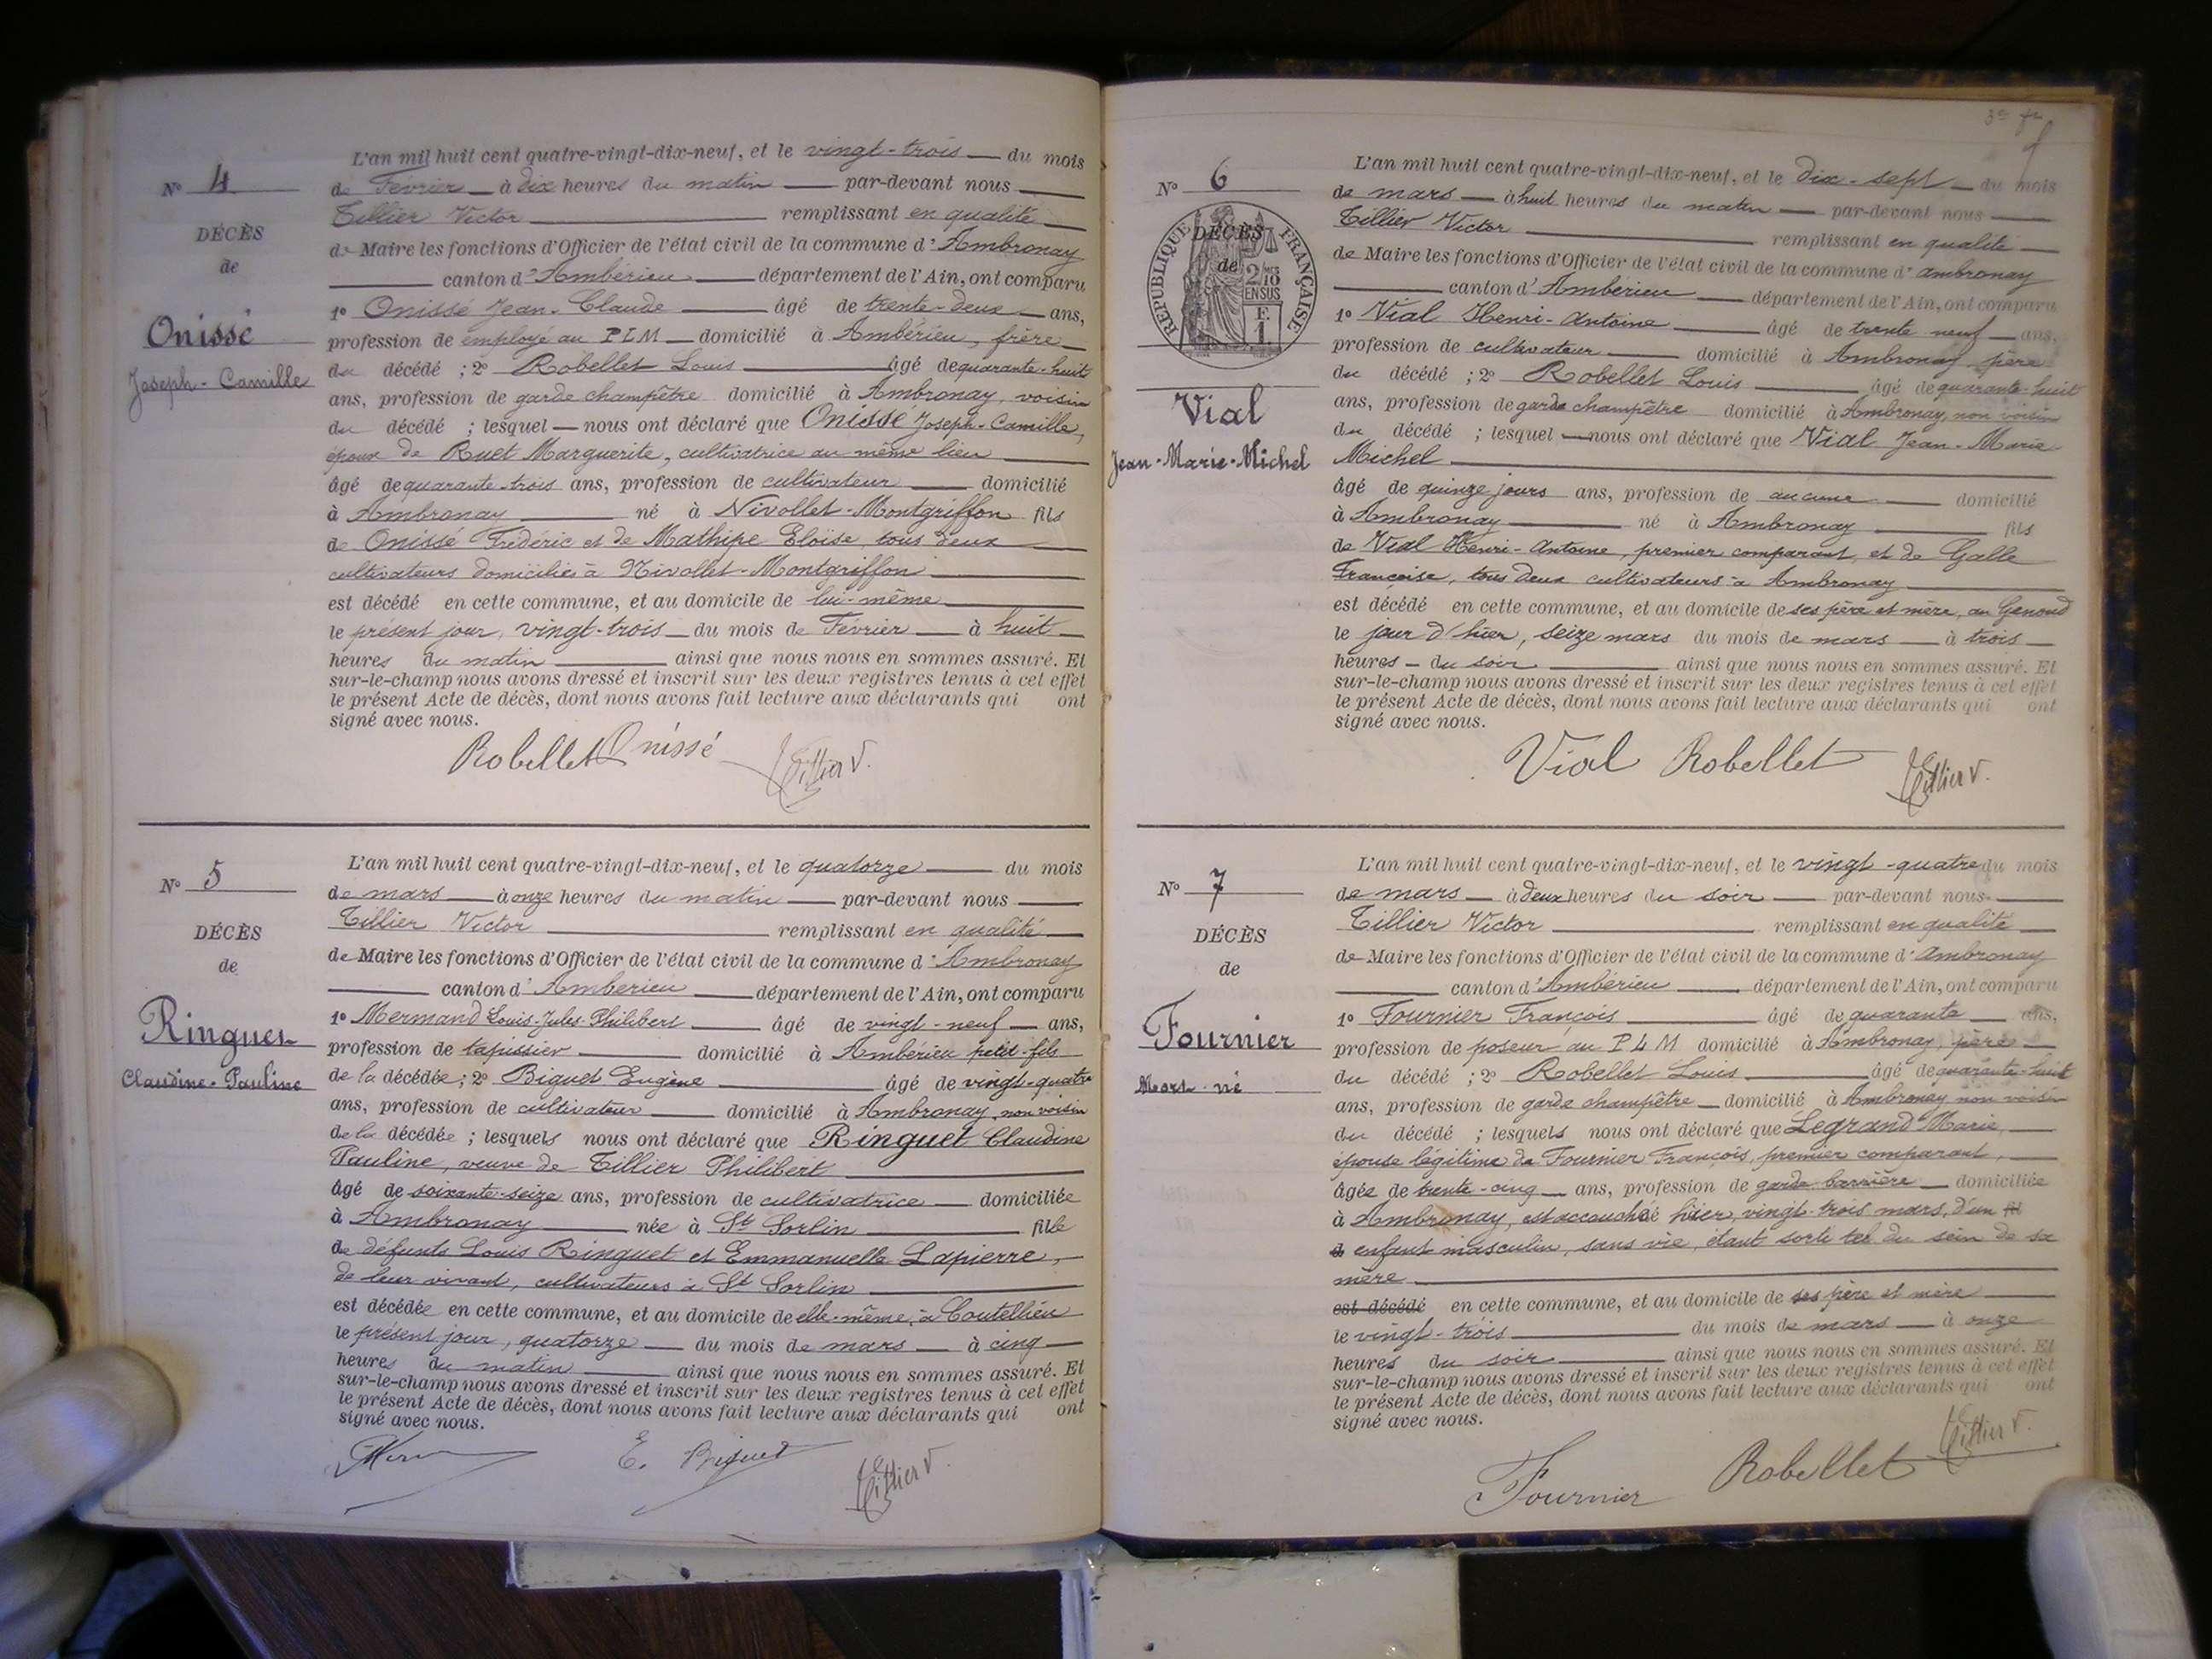 N° 4
DÉCÈS
de
Onissé
Joseph-Camille
L'an mil huit cent quatre-vingt-dix-neuf, et le vingt-trois du mois
de Février à dix heures du matin par-devant nous
Tillier Victor remplissant en qualité
de Maire les fonctions d'Officier de l'état civil de la commune d'Ambronay
canton d'Ambérieu département de l'Ain, ont comparu
1° Onissé Jean-Claude âgé de trente-deux ans,
profession de employé au PLM domicilié à Ambérieu, frère
du décédé ; 2° Robellet Louis âgé de quarante-huit
ans, profession de garde champêtre domicilié à Ambronay, voisin
du décédé ; lesquel nous ont déclaré que Onissé Joseph-Camille,
époux de Ruet Marguerite, cultivatrice au même lieu
âgé de quarante-trois ans, profession de cultivateur domicilié
à Ambronay né à Nivollet-Montgriffon fils
de Onissé Frédéric et de Mathipe Eloïse, tous deux
cultivateurs domiciliés à Nivollet-Montgriffon
est décédé en cette commune, et au domicile de lui-même
le présent jour, vingt-trois du mois de Février à huit
heures du matin ainsi que nous nous en sommes assuré. Et
sur-le-champ nous avons dressé et inscrit sur les deux registres tenus à cet effet
le présent Acte de décès, dont nous avons fait lecture aux déclarants qui ont
signé avec nous.
Robellet Onissé Tillier V.
N° 5
DÉCÈS
de
Ringuet
Claudine-Pauline
L'an mil huit cent quatre-vingt-dix-neuf, et le quatorze du mois
de mars à onze heures du matin par-devant nous
Tillier Victor remplissant en qualité
de Maire les fonctions d'Officier de l'état civil de la commune d'Ambronay
canton d'Ambérieu département de l'Ain, ont comparu
1° Mermand Louis-Jules-Philibert âgé de vingt-neuf ans,
profession de tapissier domicilié à Ambérieu petit-fils
de la décédée ; 2° Biguet Eugène âgé de vingt-quatre
ans, profession de cultivateur domicilié à Ambronay, non voisin
de la décédée ; lesquels nous ont déclaré que Ringuet Claudine
Pauline, veuve de Tillier Philibert
âgé de soixante-seize ans, profession de cultivatrice domiciliée
à Ambronay née à St Sorlin fille
de défunts Louis Ringuet et Emmanuelle Lapierre,
de leur vivant, cultivateurs à St Sorlin
est décédée en cette commune, et au domicile de elle-même, à Coutellieu
le présent jour, quatorze du mois de mars à cinq
heures du matin ainsi que nous nous en sommes assuré. Et
sur-le-champ nous avons dressé et inscrit sur les deux registres tenus à cet effet
le présent Acte de décès, dont nous avons fait lecture aux déclarants qui ont
signé avec nous.
E. Biguet Tillier V.
N° 6
RÉPUBLIQUE FRANÇAISE
DÉCÈS
de
2/10 EN SUS
F. 1
Vial
Jean-Marie-Michel
L'an mil huit cent quatre-vingt-dix-neuf, et le dix-sept du mois
de mars à huit heures du matin par-devant nous
Tillier Victor remplissant en qualité
de Maire les fonctions d'Officier de l'état civil de la commune d'ambronay
canton d'Ambérieu département de l'Ain, ont comparu
1° Vial Henri-Antoine âgé de trente neuf ans,
profession de cultivateur domicilié à Ambronay père
du décédé ; 2° Robellet Louis âgé de quarante-huit
ans, profession de garde champêtre domicilié à Ambronay, non voisin
du décédé ; lesquel nous ont déclaré que Vial Jean-Marie
Michel
âgé de quinze jours ans, profession de aucune domicilié
à Ambronay né à Ambronay fils
de Vial Henri-Antoine, premier comparant, et de Galle
Françoise, tous deux cultivateurs à Ambronay
est décédé en cette commune, et au domicile de ses père et mère, au Genoud
le jour d'hier, seize mars du mois de mars à trois
heures du soir ainsi que nous nous en sommes assuré. Et
sur-le-champ nous avons dressé et inscrit sur les deux registres tenus à cet effet
le présent Acte de décès, dont nous avons fait lecture aux déclarants qui ont
signé avec nous.
Vial Robellet Tillier V.
N° 7
DÉCÈS
de
Fournier
Mort-né
L'an mil huit cent quatre-vingt-dix-neuf, et le vingt-quatre du mois
de mars à deux heures du soir par-devant nous
Tillier Victor remplissant en qualité
de Maire les fonctions d'Officier de l'état civil de la commune d'ambronay
canton d'Ambérieu département de l'Ain, ont comparu
1° Fournier François âgé de quarante ans,
profession de poseur au PLM domicilié à Ambronay, père
du décédé ; 2° Robellet Louis âgé de quarante-huit
ans, profession de garde champêtre domicilié à Ambronay, non voisin
du décédé ; lesquels nous ont déclaré que Legrand Marie,
épouse légitime de Fournier François, premier comparant,
âgée de trente-cinq ans, profession de garde barrière domiciliée
à Ambronay, est accouchée hier, vingt-trois mars, d'un
enfant masculin, sans vie, étant sorti tel du sein de sa
mère
est décédé en cette commune, et au domicile de ses père et mère
le vingt-trois du mois de mars à onze
heures du soir ainsi que nous nous en sommes assuré. Et
sur-le-champ nous avons dressé et inscrit sur les deux registres tenus à cet effet
le présent Acte de décès, dont nous avons fait lecture aux déclarants qui ont
signé avec nous.
Fournier Robellet Tillier V.